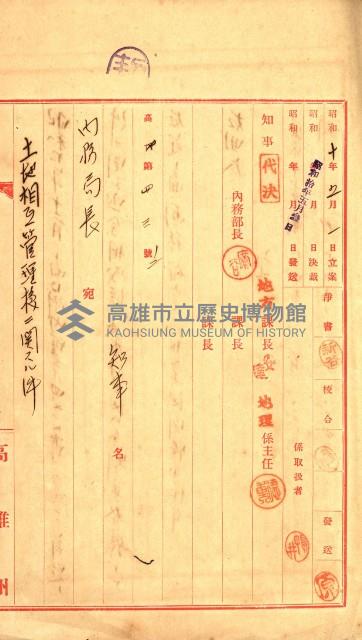 昭和十年 月一日立案
昭和 年 月 日決裁
昭和 年 月 日發送
淨書
校合
發送
係取扱者
知事
代決
內務部長
地方課長
課長
課長
地理係主任
高 第四三號ノ1
內務局長 宛
知事 名
土地相互管理換ニ関スル件
高雄市立歷史博物館
KAOHSIUNG MUSEUM OF HISTORY
高雄州